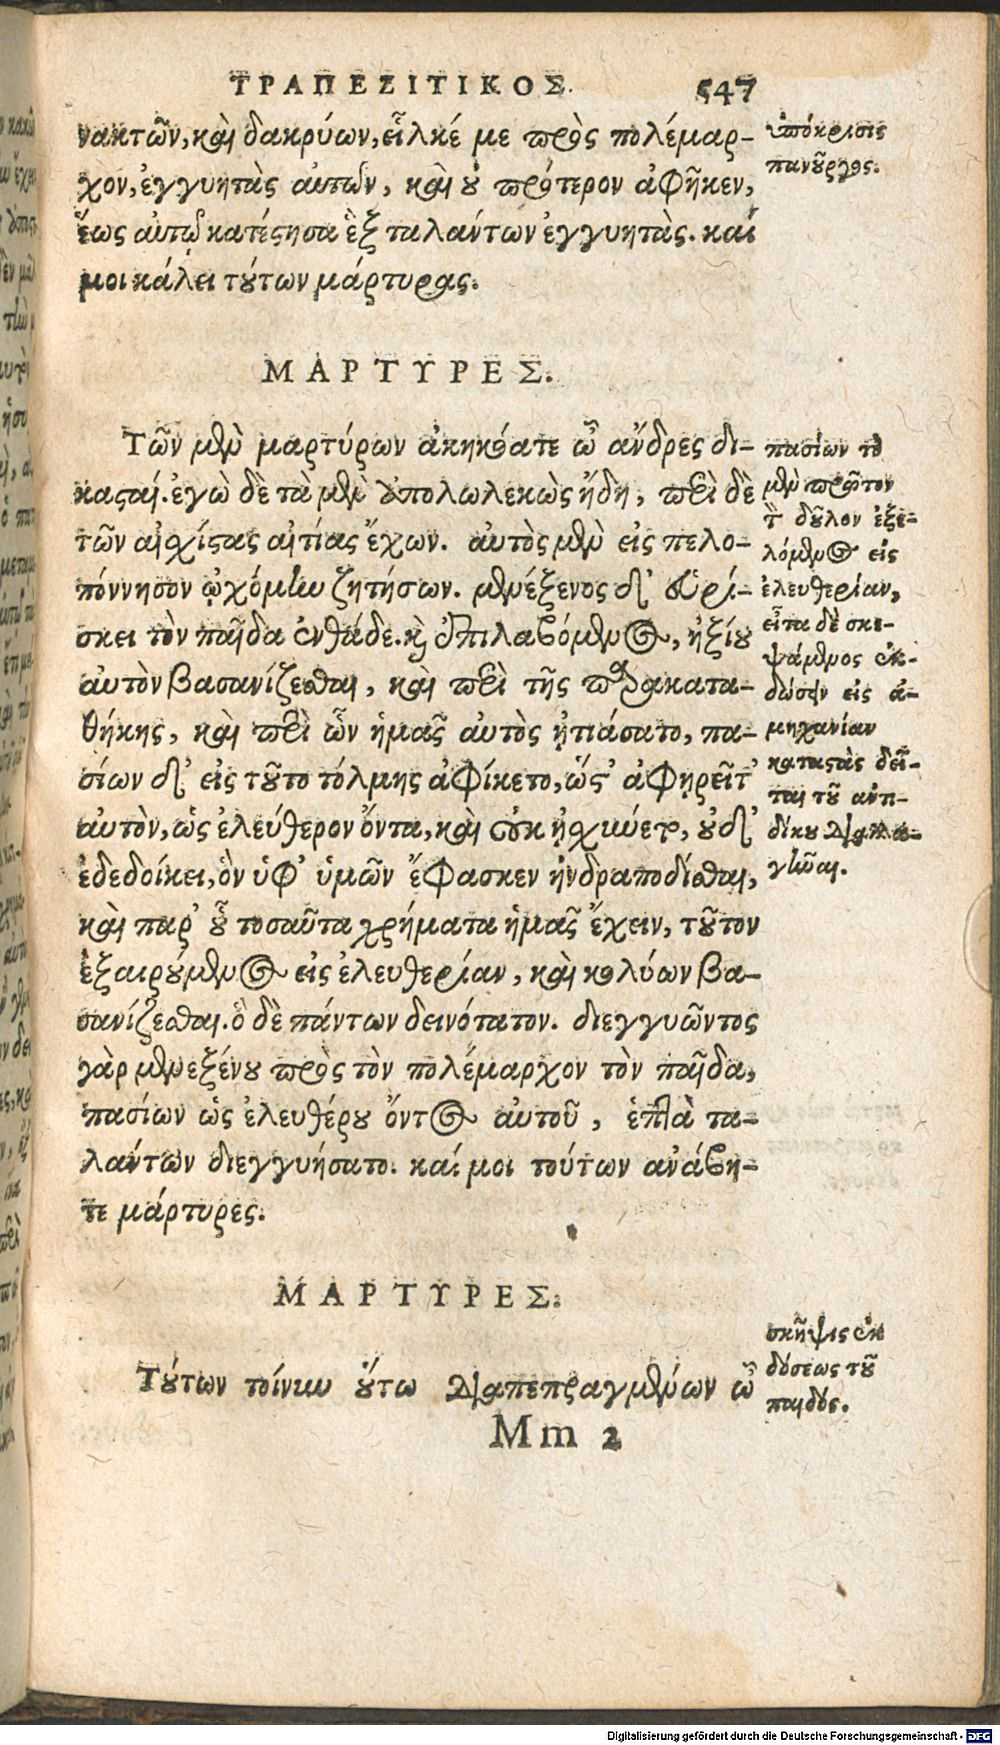 ΤΡΑΠΕΖΙΤΙΚΟΣ. 547
νακτῶν, καὶ δακρύων, εἷλκέ με πρὸς πολέμαρ-
χον, ἐγγυητὰς αἰτῶν, καὶ οὐ πρότερον ἀφῆκεν,
ἕως αὐτῷ κατέστησα ἓξ ταλάντων ἐγγυητὰς. καί
μοι κάλει τούτων μάρτυρας.
ὑπόκρισις
πανοῦργος.
ΜΑΡΤΥΡΕΣ.
Τῶν μὲν μαρτύρων ἀκηκόατε ὦ ἄνδρες δι-
καςαί. ἐγὼ δὲ τὰ μὲν ἀπολωλεκὼς ἤδη, περὶ δὲ
τῶν αἰσχίστας αἰτίας ἔχων. αὐτὸς μὲν εἰς πελο-
πόννησον ᾠχόμην ζητήσων. μενέξενος δ' εὑρί-
σκει τὸν παῖδα ἐνθάδε. καὶ ἐπιλαβόμενος, ἠξίου
αὐτὸν βασανίζεσθαι, καὶ περὶ τῆς παρακατα-
θήκης, καὶ περὶ ὧν ἡμᾶς αὐτὸς ᾐτιάσατο, πα-
σίων δ' εἰς τοῦτο τόλμης ἀφίκετο, ὥστ' ἀφῃρεῖτ'
αὐτὸν, ὡς ἐλεύθερον ὄντα, καὶ οὐκ ᾐσχύνετο, οὐδ'
ἐδεδοίκει, ὃν ὑφ' ὑμῶν ἔφασκεν ἠνδραποδίσθαι,
καὶ παρ' οὗ τοσαῦτα χρήματα ἡμᾶς ἔχειν, τοῦτον
ἐξαιρούμενος εἰς ἐλευθερίαν, καὶ κωλύων βα-
σανίζεσθαι. ὃ δὲ πάντων δεινότατον. διεγγυῶντος
γὰρ μενεξένου πρὸς τὸν πολέμαρχον τὸν παῖδα,
πασίων ὡς ἐλευθέρου ὄντος αὐτοῦ, ἑπτὰ τα-
λάντων διεγγυήσατο. καί μοι τούτων ἀνάβη-
τε μάρτυρες.
πασίων τὸ
μὲν πρῶτον
τ δοῦλον ἐξε-
λόμενος εἰς
ἐλευθερίαν,
εἶτα δὲ σκε-
ψάμενος ἐκ-
δώσειν εἰς ἀ-
μηχανίαν
καταστὰς δεῖ-
ται τοῦ ἀντι-
δίκου διαλα-
γῆναι.
ΜΑΡΤΥΡΕΣ.
Τούτων τοίνυν οὕτω διαπεπραγμένων ὦ
σκῆψις ἐκ
δόσεως τοῦ
παιδός.
Mm 2
Digitalisierung gefördert durch die Deutsche Forschungsgemeinschaft - DFG